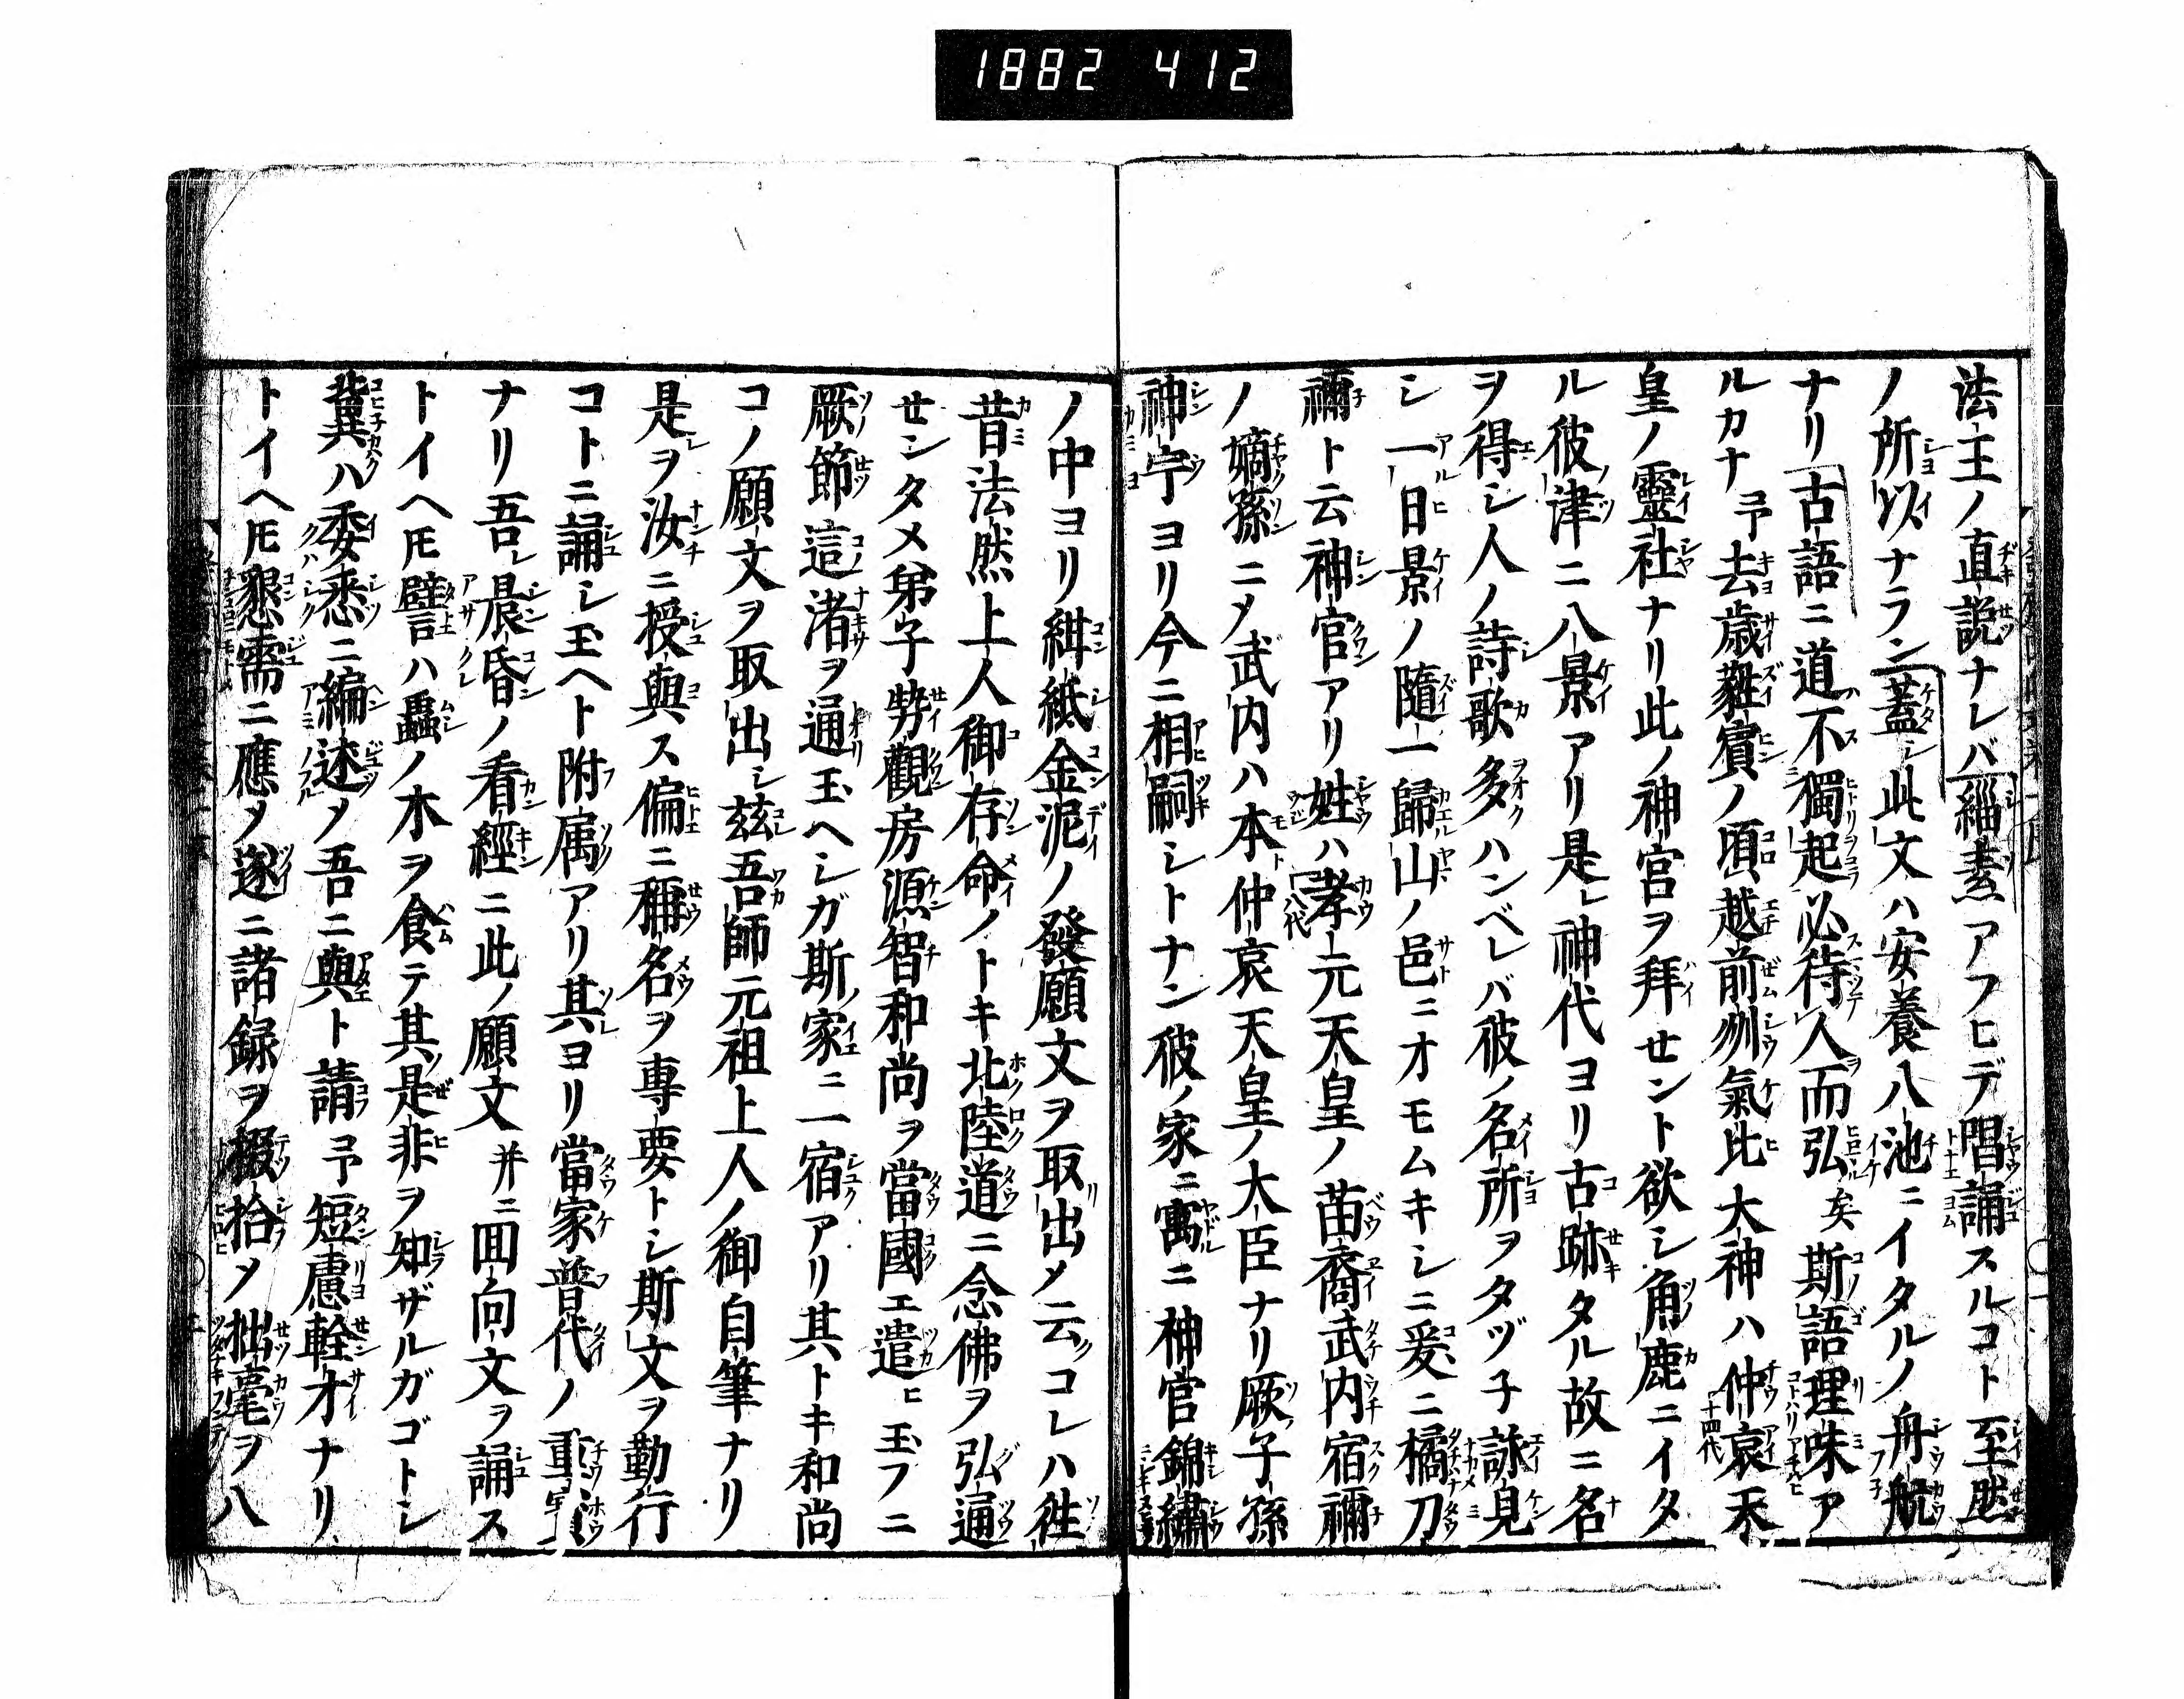 1882 412
法王ノ直説ナレバ緇素アフヒデ唱誦スルコト至然
ノ所以ナラン蓋シ此文ハ安養八池ニイタルノ舟航
ナリ古語ニ道不獨起必待人而弘矣斯語理味ア
ルカナ予去歳蕤賓ノ頃越前州氣比大神ハ仲哀天
皇ノ靈社ナリ此ノ神宮ヲ拜セント欲シ角鹿ニイタ
ル彼津ニ八景アリ是レ神代ヨリ古跡タル故ニ名
ヲ得シ人ノ詩歌多ハンベレバ彼ノ名所ヲタヅ子詠見
シ一日景ノ隨一歸山ノ邑ニオモムキシニ爰ニ橘刀
禰ト云神官アリ姓ハ孝元天皇ノ苗裔武内宿禰
ノ嫡孫ニメ武内ハ本ト仲哀天皇ノ大臣ナリ厥子孫
神宁ヨリ今ニ相嗣シトナン彼ノ家ニ寓ニ神官錦繡
ノ中ヨリ紺紙金泥ノ發願文ヲ取リ出メ云クコレハ徃
昔法然上人御存命ノトキ北陸道ニ念佛ヲ弘通
セシタメ弟子勢觀房源智和尚ヲ當國エ遣ヒ玉フニ
厥節這渚ヲ通玉ヘシガ斯ノ家ニ一宿アリ其トキ和尚
コノ願文ヲ取出シ玆吾師元祖上人ノ御自筆ナリ
是ヲ汝ニ授與ス偏ニ稱名ヲ專要トシ斯文ヲ勤行
コトニ誦シ玉ヘト附属アリ其ヨリ當家普代ノ重寳
ナリ吾レ晨昏ノ看經ニ此ノ願文并ニ囘向文ヲ誦ス
トイヘ𪜈譬言ハ蠧ノ木ヲ食テ其是非ヲ知ザルガゴトシ
冀ハ委悉ニ編述メ吾ニ與ト請予短慮輇才ナリ
トイヘ𪜈懇需ニ應メ遂ニ諸録ヲ掇拾メ拙毫ヲ八